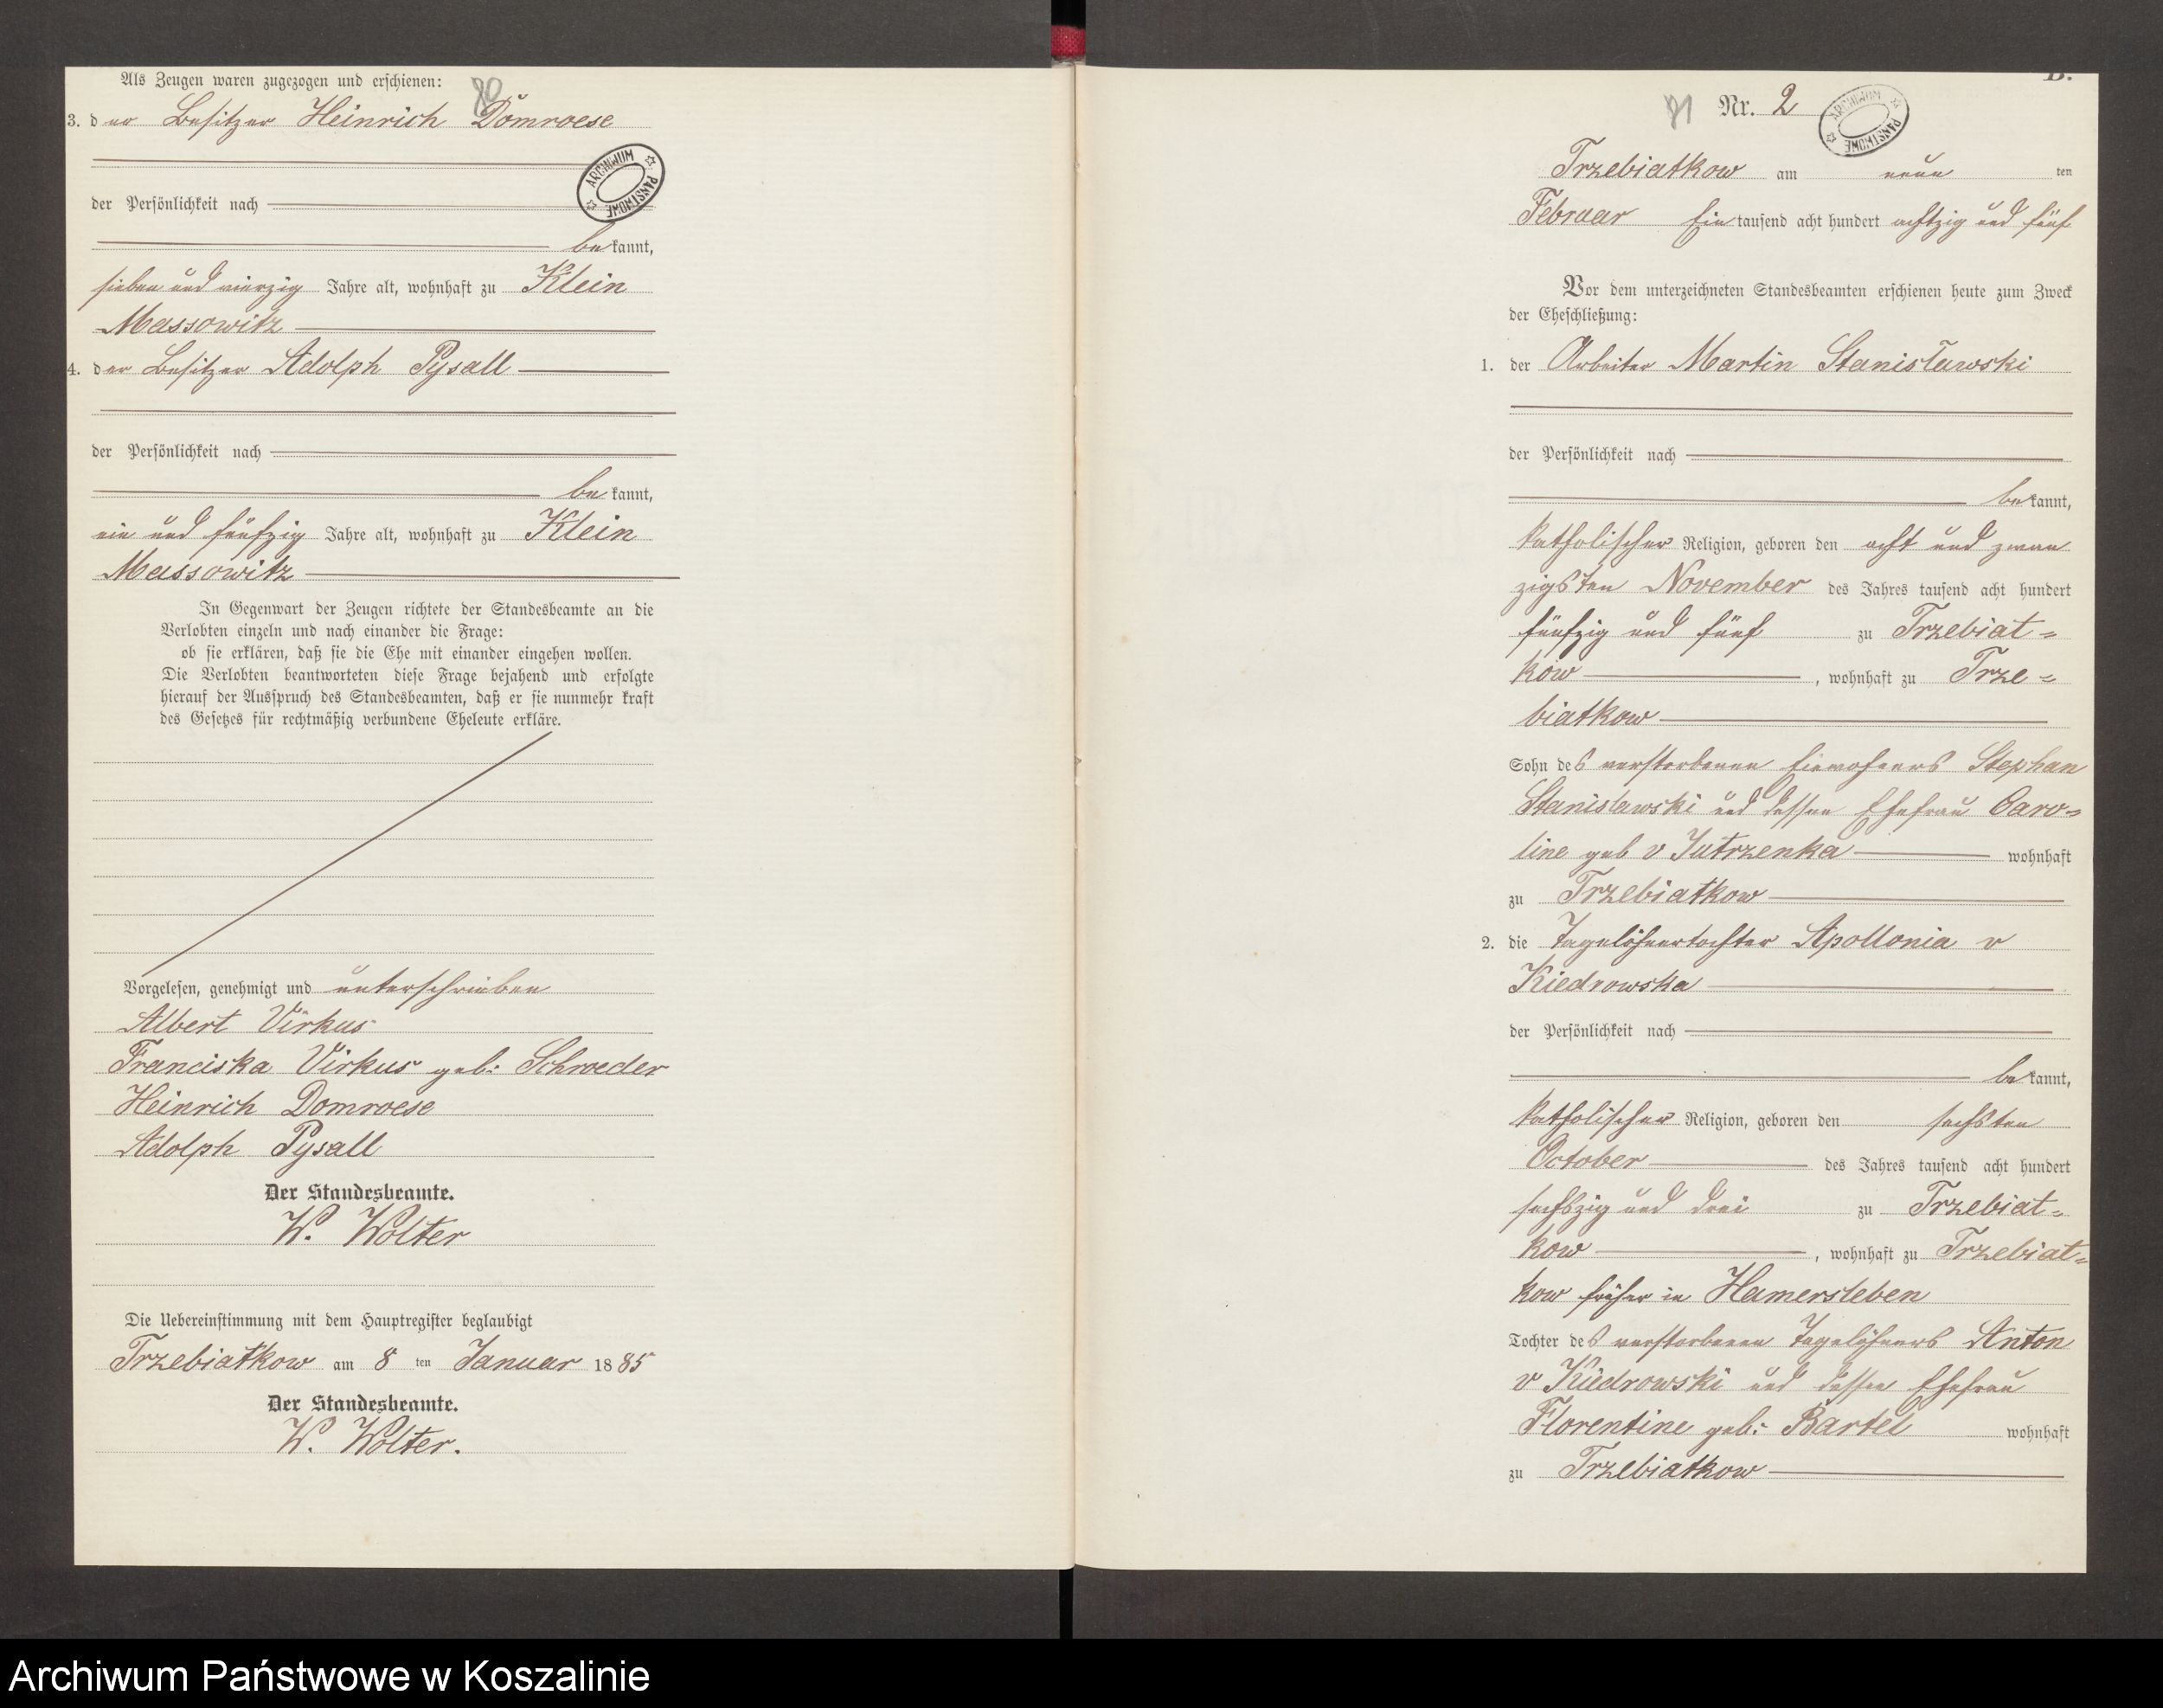 Als Zeugen waren zugezogen und erschienen:
80
3. der Besitzer Heinrich Domroese
ARCHIWUM PAŃSTWOWE
der Persönlichkeit nach
bekannt,
sieben und vierzig Jahre alt, wohnhaft zu Klein
Massowitz
4. der Besitzer Adolph Pysall
der Persönlichkeit nach
bekannt,
ein und fünfzig Jahre alt, wohnhaft zu Klein
Massowitz
In Gegenwart der Zeugen richtete der Standesbeamte an die
Verlobten einzeln und nach einander die Frage:
ob sie erklären, daß sie die Ehe mit einander eingehen wollen.
Die Verlobten beantworteten diese Frage bejahend und erfolgte
hierauf der Ausspruch des Standesbeamten, daß er sie nunmehr kraft
des Gesetzes für rechtmäßig verbundene Eheleute erkläre.
Vorgelesen, genehmigt und unterschrieben
Albert Virkus
Franciska Virkus geb: Schroeder
Heinrich Domroese
Adolph Pysall
Der Standesbeamte.
W. Wolter
Die Uebereinstimmung mit dem Hauptregister beglaubigt
Trzebiatkow am 8 ten Januar 1885
Der Standesbeamte.
W. Wolter.
B.
81 Nr. 2
ARCHIWUM PAŃSTWOWE
Trzebiatkow am neun ten
Februar Ein tausend acht hundert achtzig und fünf
Vor dem unterzeichneten Standesbeamten erschienen heute zum Zweck
der Eheschließung:
1. der Arbeiter Martin Stanisławski
der Persönlichkeit nach
bekannt,
katholischer Religion, geboren den acht und zwan
zigsten November des Jahres tausend acht hundert
fünfzig und fünf zu Trzebiat=
kow, wohnhaft zu Trze=
biatkow
Sohn des verstorbenen Einwohners Stephan
Stanislawski und dessen Ehefrau Caro=
line geb v Jutrzenka wohnhaft
zu Trzebiatkow
2. die Tagelöhnertochter Apollonia v
Kiedrowska
der Persönlichkeit nach
bekannt,
katholischer Religion, geboren den sechsten
October des Jahres tausend acht hundert
sechszig und drei zu Trzebiat=
kow, wohnhaft zu Trzebiat=
kow früher in Hamersleben
Tochter des verstorbenen Tagelöhners Anton
v Kiedrowski und dessen Ehefrau
Florentine geb: Bartel wohnhaft
zu Trzebiatkow
Archiwum Państwowe w Koszalinie